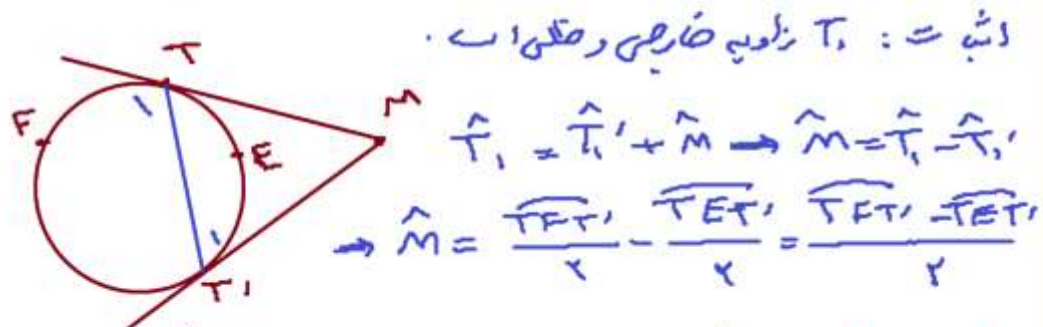 اثبات: T₁ زاویه خارجی مثلث است.
T̂₁ = T̂₁′ + M̂ → M̂ = T̂₁ - T̂₁′
→ M̂ = TFT′/۲ - TET′/۲ = TFT′ - TET′/۲
T
M
F
E
1
1
T′